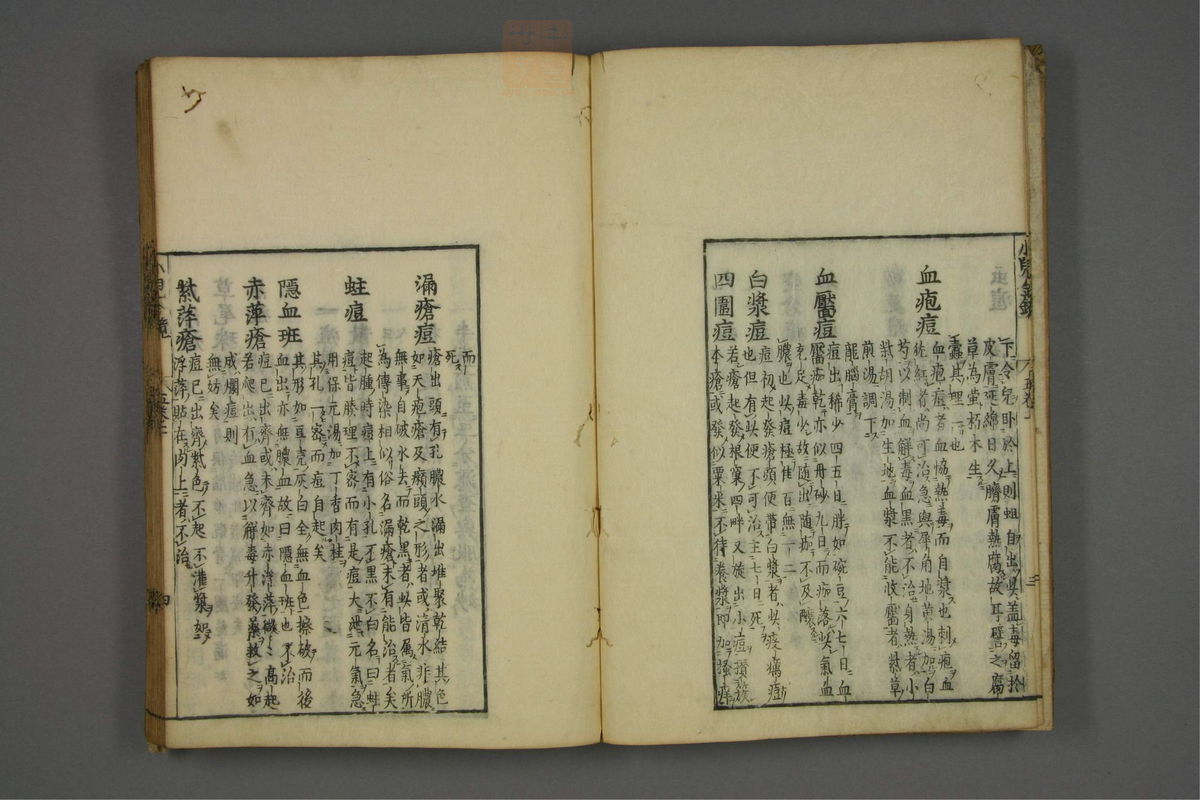 下令兒卧於上則蛆自出此盖毒留於
皮膚延綿日久膿膚熱腐故耳譬之腐
草為螢朽木生
蠹其理一也
血疱痘
血疱痘者血恊熱毒而自漿也刺疱血
紅者尚可治急與犀角地黄湯加白
芍以制血解毒血黒者不治身熱者小
柴胡湯加生地血漿不能收靨者紫草
煎湯調下
龍腦膏
血靨痘
痘出稀少四五日胖如碗豆六七日血
靨痂乾亦似丹砂九日而痂落此氣血
充足毒必故随出随痂不及釀
膿也此痘極佳百無一二
白漿痘
痘初起發瘡頭便帯白漿者此疫癘痘
也但有此便不可治主七日死
四圍痘
若瘡起發根窠四畔又旋出小痘攢簇
本瘡或發似粟米不待養漿即加搔痒
而
死
漏瘡痘
瘡出頭有孔膿水漏出堆聚乾結其色
如天疱瘡及癩頭之形者或清水非膿
無事自破水去而乾黒者此皆属氣所
為傳染相似俗名漏瘡未有能治者矣
蛀痘
起腫時痘上有小孔不黒不白名曰蛀
痘皆腠理不密而有是痘大泄元氣急
用保元湯加丁香肉桂
其孔一密而痘自起矣
隱血班
其形如豆壳灰白全無血色擦破而後
血出亦無膿血故曰隱血班也不治
赤萍瘡
痘已出齊或未齊如赤浮萍微微高起
若爬出有血急以解毒升發藥救之如
成爛痘則
無妨矣
紫萍瘡
痘已出齊紫色不起不灌漿如
浮萍貼在肉上者不治